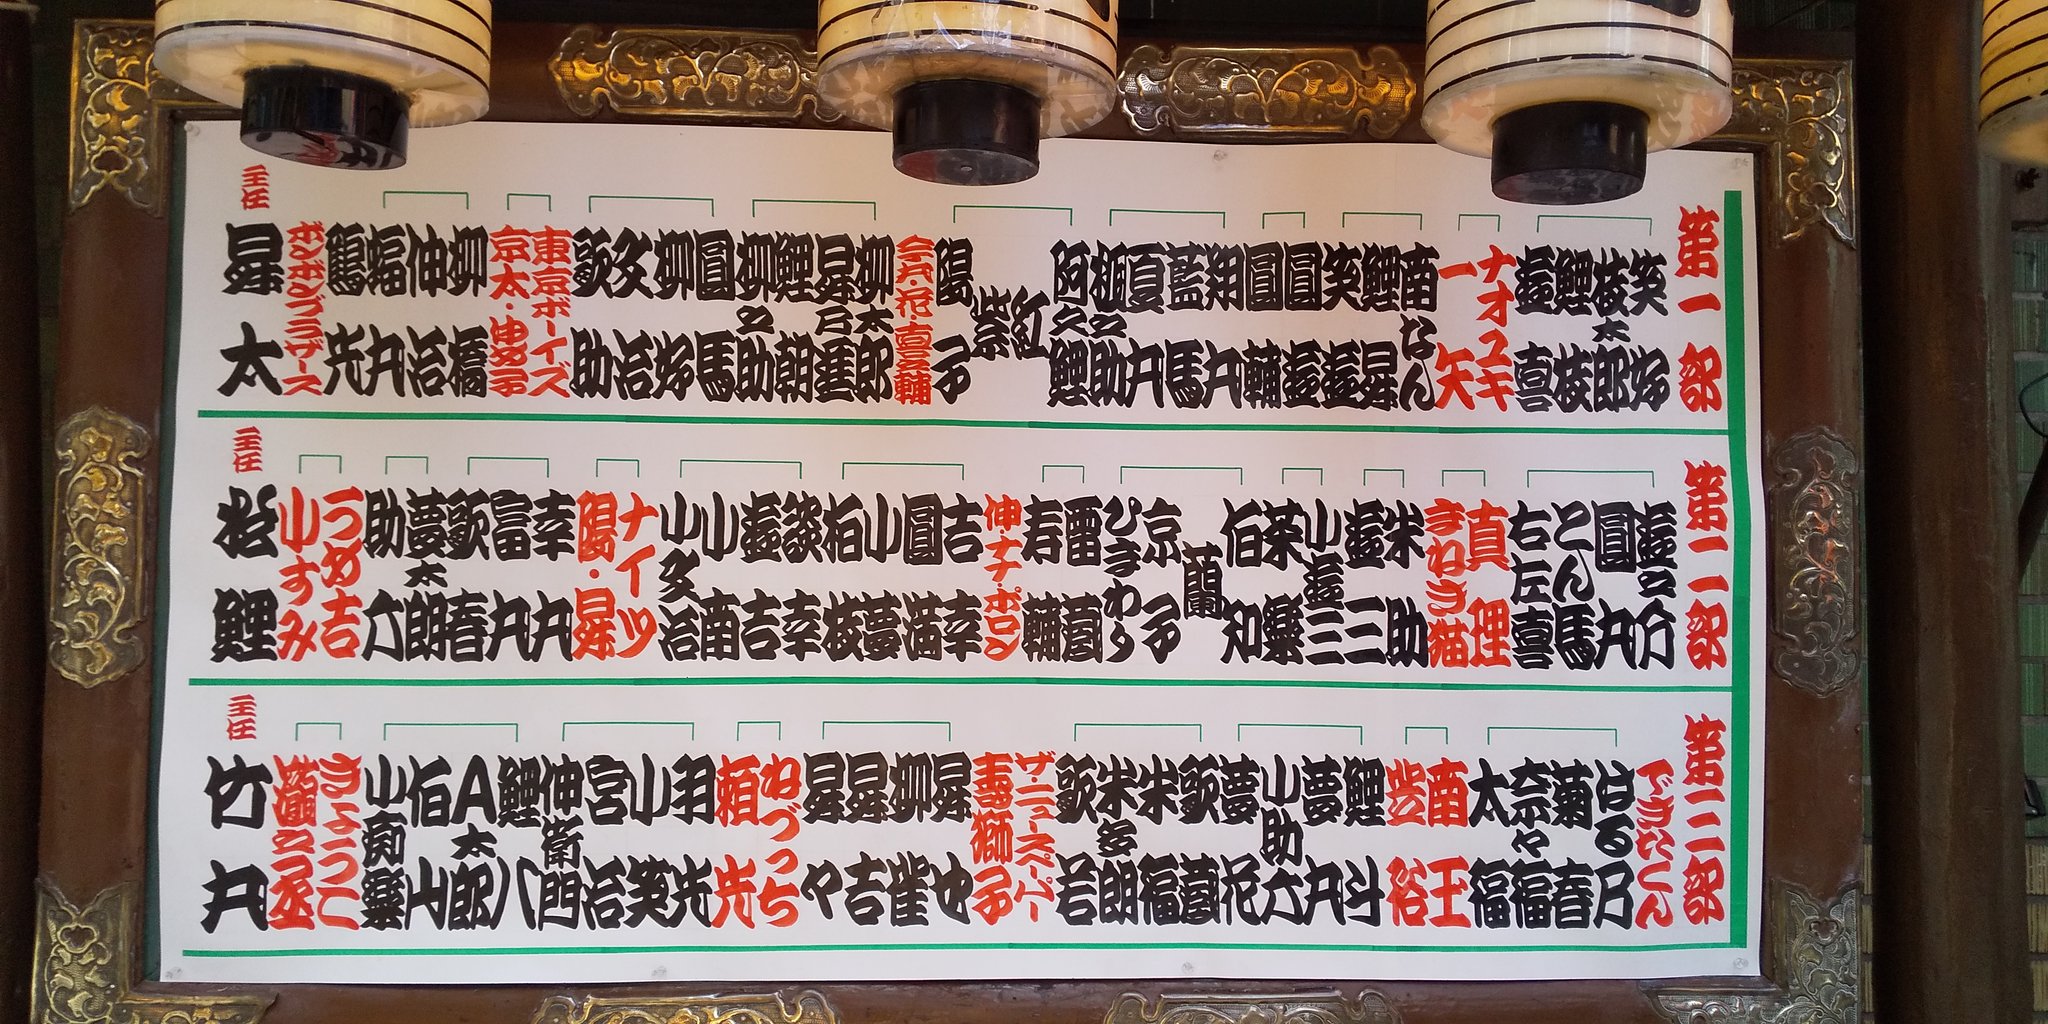 第一部
笑好
枝太郎
鯉枝
遊喜
ナオユキ
一矢
南なん
鯉昇
笑遊
圓遊
圓輔
翔丸
藍馬
夏丸
楯之助
阿久鯉
紅
紫
陽子
今丸・花・
柳太郎
昇乃進
鯉朝
柳之助
圓馬
柳好
文治
歌助
東京ボーイズ
京太・ゆめ子
柳橋
伸治
蝠丸
鶴光
ボンボンブラザース
主任
昇太
第二部
遊之介
圓丸
とん馬
右左喜
真理
まねき猫
米助
遊三
小遊三
茶樂
伯知
蘭
京子
ひまわり
雷蔵
寿輔
伸・ナナ・ポロン
吉幸
圓満
小夢
柏枝
談幸
遊吉
小南
小文治
ナイツ
陽・昇
幸丸
富丸
歌春
夢太朗
助六
うめ吉
小すみ
主任
松鯉
第三部
できたくん
はる乃
菊春
奈々福
太福
南玉
鯉斗
夢丸
小助六
夢花
歌蔵
米福
米多朗
歌若
ザ・ニュースペーパー
寿獅子
昇也
柳雀
昇吉
昇々
ねづっち
頼光
羽光
小笑
宮治
伸衛門
鯉八
A太郎
伯山
小痴樂
主任
竹丸